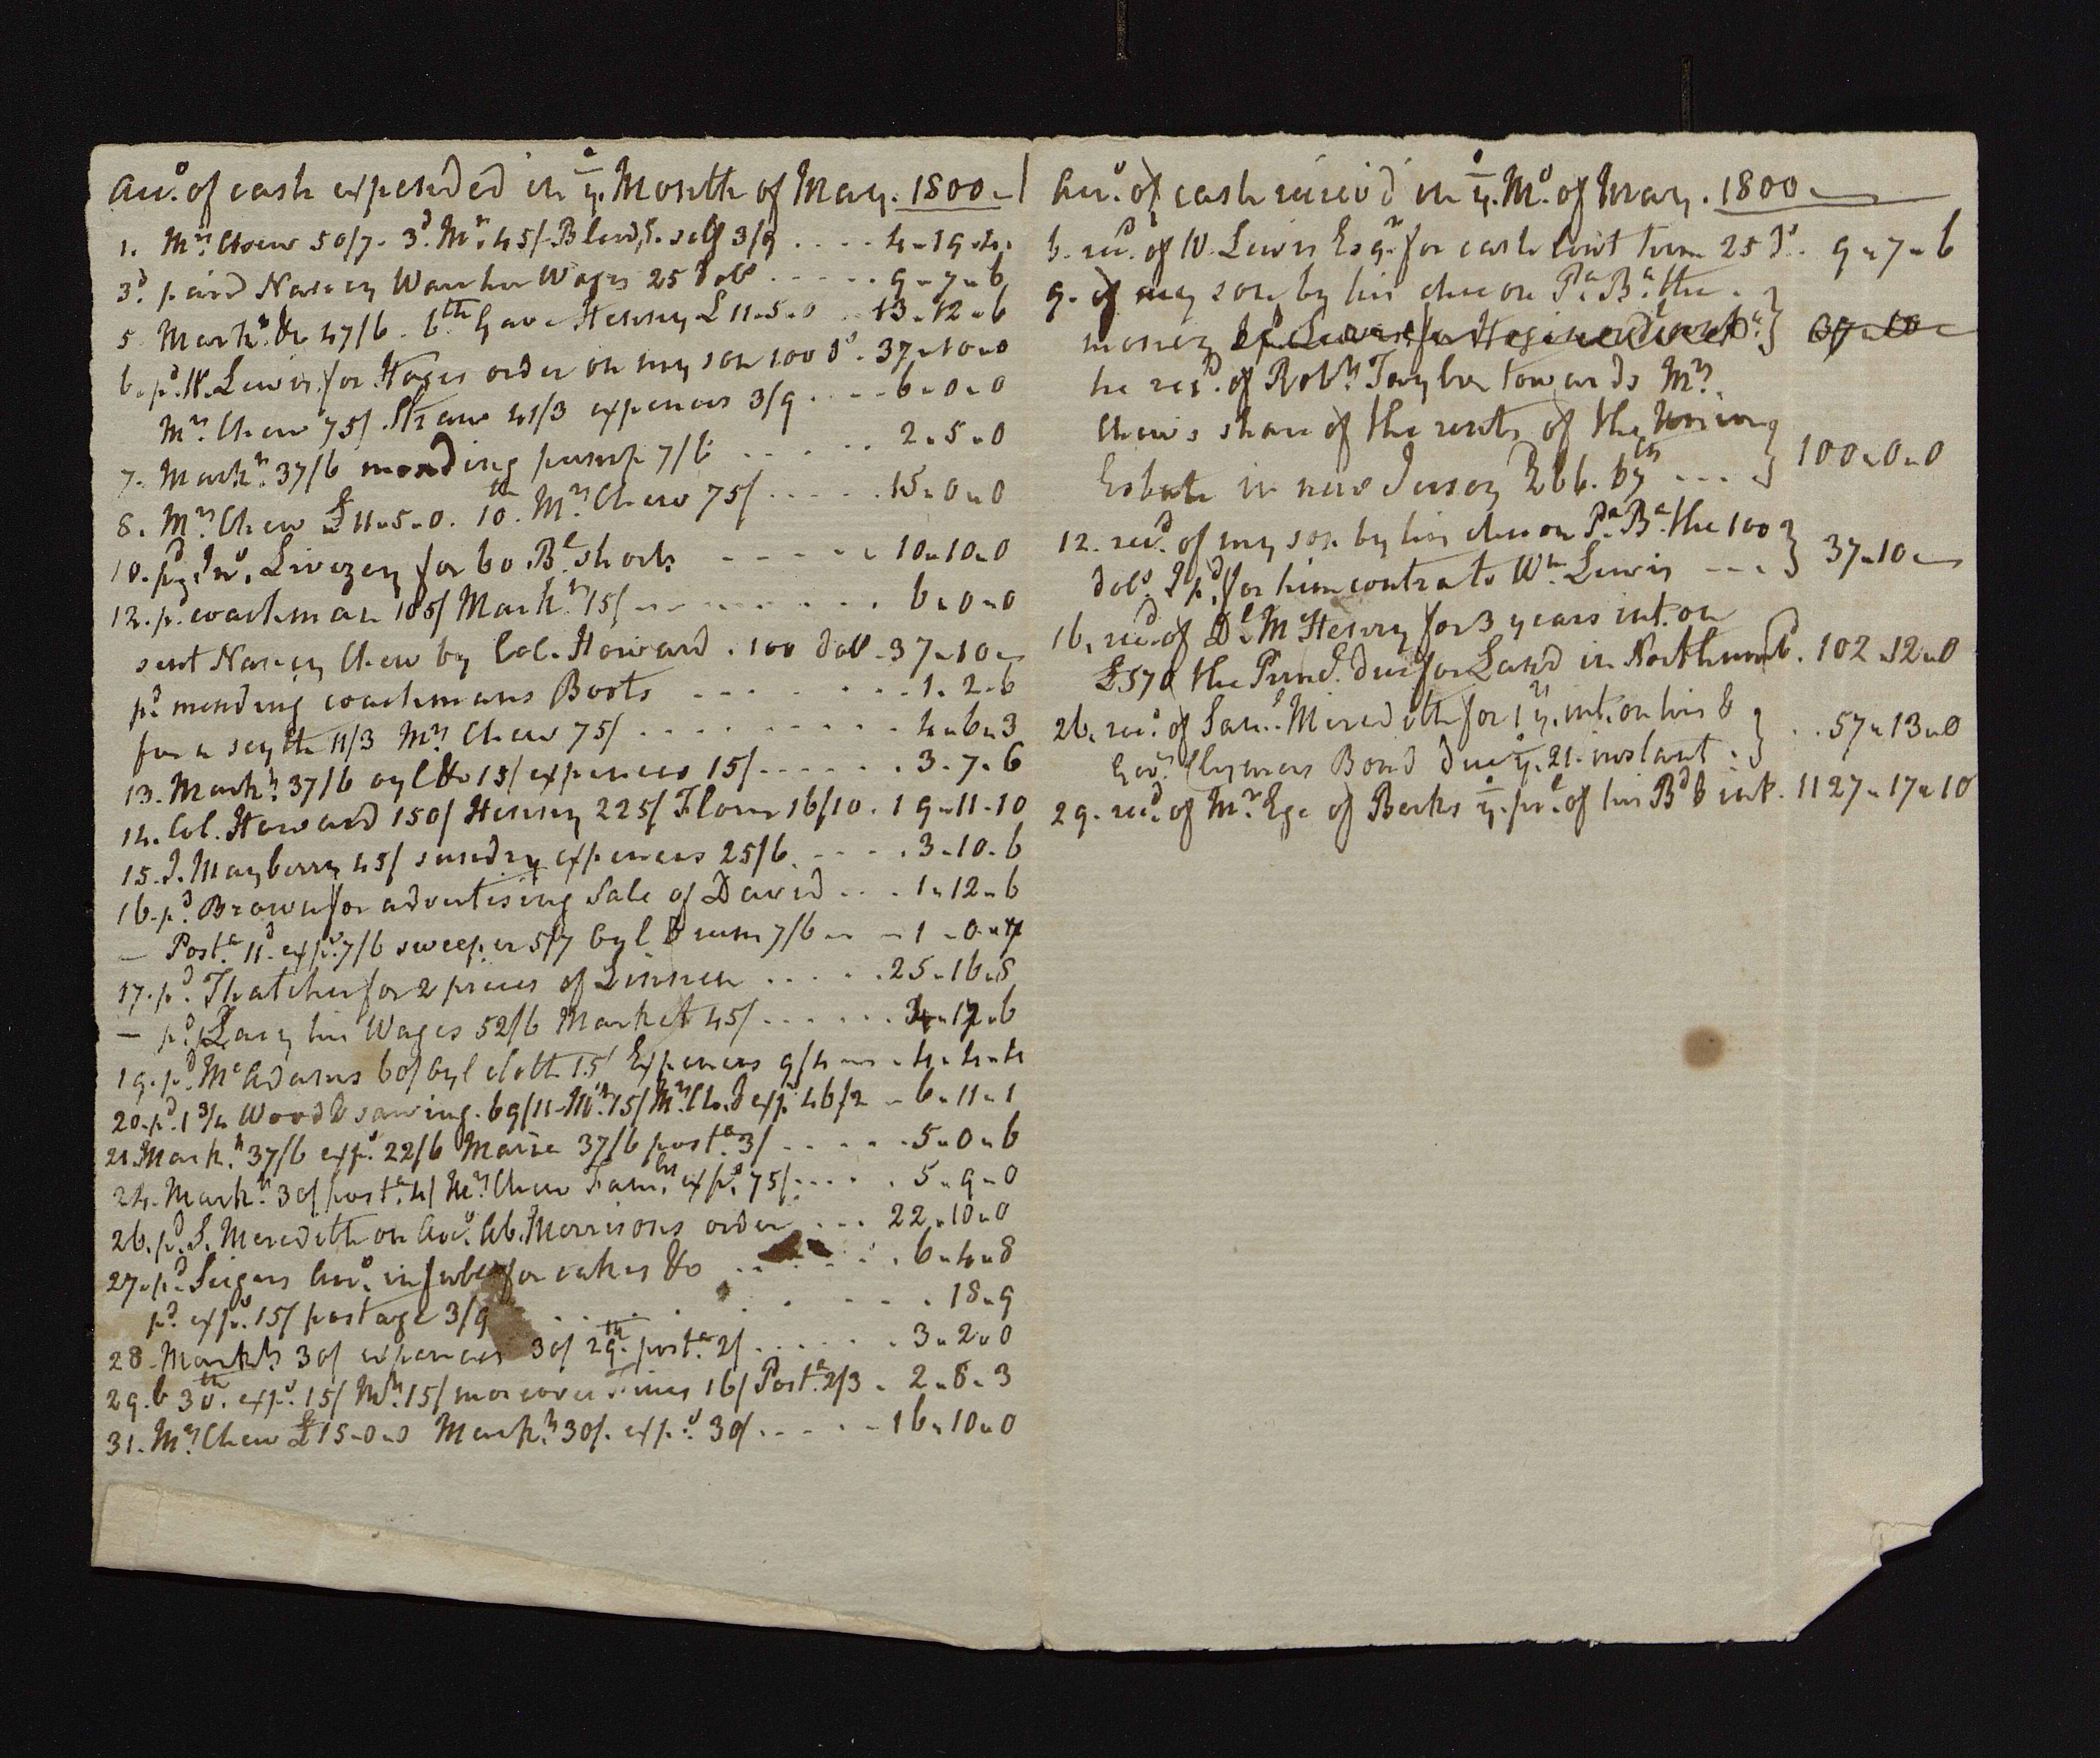 Acco. of cash expended in ye. Month of May. 1800
1. Mrs Chew 50/7. 3d. Mrs. 45/ self 3/9 .... 4-19-4
3d. paid Nancy Wages 25 Doll ..... 9-7-6
5 Markt. &c 47/6. 6th Gave Henny £11.5.0 .. 13-12-6
6. pd. W. Lewis for Hages order on my son 100 Ds. 37-10-0
Mrs. Chew 75/ Straw 41/3 expences 3/9 .... 6-0-0
7. Markt. 37/6 mending pump 7/6 ...... 2.5.0
8. Mrs Chew £11-5-0. 10th. Mrs Chew 75/ ..... 15-0-0
10. pd. Jno. Livezey for 60 Bls. shorts ..... 10-10-0
12. pd. coachman 105/ Markt. 15/ ......... 6-0-0
sent Nancy Chew by Col. Howard. 100 doll. 37-10-
pd. mending coachmans Boots ........ 1.2.6
for a scythe 11/3 Mrs Chew 75/ .......... 4-6-3
13. Markt. 37/6 oyl &c 15/ expences 15/ ...... 3.7.6
14. Col. Howard 150/ Henny 225/ Flour 16/10. 19-11-10
15. J. Mayberry 45/ sundry expences 25/6 ..... 3-10-6
16. pd. Brown for advertising Sale of David ... 1-12-6
— Posta. 11d exps. 7/6 sweeper 5/7 oyl & rum 7/6 1-0-
17. pd. Thatcher for 2 pieces of Linnen ..... 25-16-8
— pd. his Wages 52/6 Market 45/ ...... 4-17-6
19. pd. McAdams 60/ oyl cloth 15/ Expences 9/4 4-4-4
20. pd. 1 3/4 Wood & sawing. 69/11 Mt. 15/ exps. 46/2 6-11-1
21. Markt. 37/6 exps. 22/6 Maria 37/6 posta. 3/ ..... 5-0-6
24. Markt. 30/ posta. 4/ Mrs. Chew Famly exps. 75/ .... 5-9-0
26. pd. S. Meredith on Acco. Ab. Morrisons order ... 22-10-0
27. pd. Acco. in full for cakes &c ...... 6-4-8
pd. exps. 15/ postage 3/9 ....... 18-9
28. Markt. 30/ expences 30/ 29th. posta. 2/ ...... 3-2-0
29. & 30th. exps. 15/ Mt. 15/ 16/ Posta. 2/3. 2-8-3
31. Mrs Chew £15-0-0 Markt. 30/. exps. 30/. .... 16-10-0
Acco. of cash receiv'd in ye. Mo. of May. 1800
6. recd. of W. Lewis Esqr. for cash lent him 25 Ds. 9-7-6
9. of my son by his chec on Pa. Ba. the
money
he recd. of Robt. Taylor towards Mrs.
Chew's share of the rents of the Union
Estate in new Jersey 266. 67 ... 100-0-0
12. recd. of my son by his chec on Pa. Ba. the 100
dols. I pd. for him contra to Wm. Lewis ... 37-10-
16. recd. of Dl. McHenry for 3 years int. on
£570 the Princl. due for Land in Northumbd. 102-12-0
26. recd. of Saml. Meredith for 1 y. int. on his &
Geo. Clymers Bond due ye. 21. instant . .. 57-13-0
29. recd. of Mr. Ege of Berks ye. prl. of his Bd & int. 1127-17-10